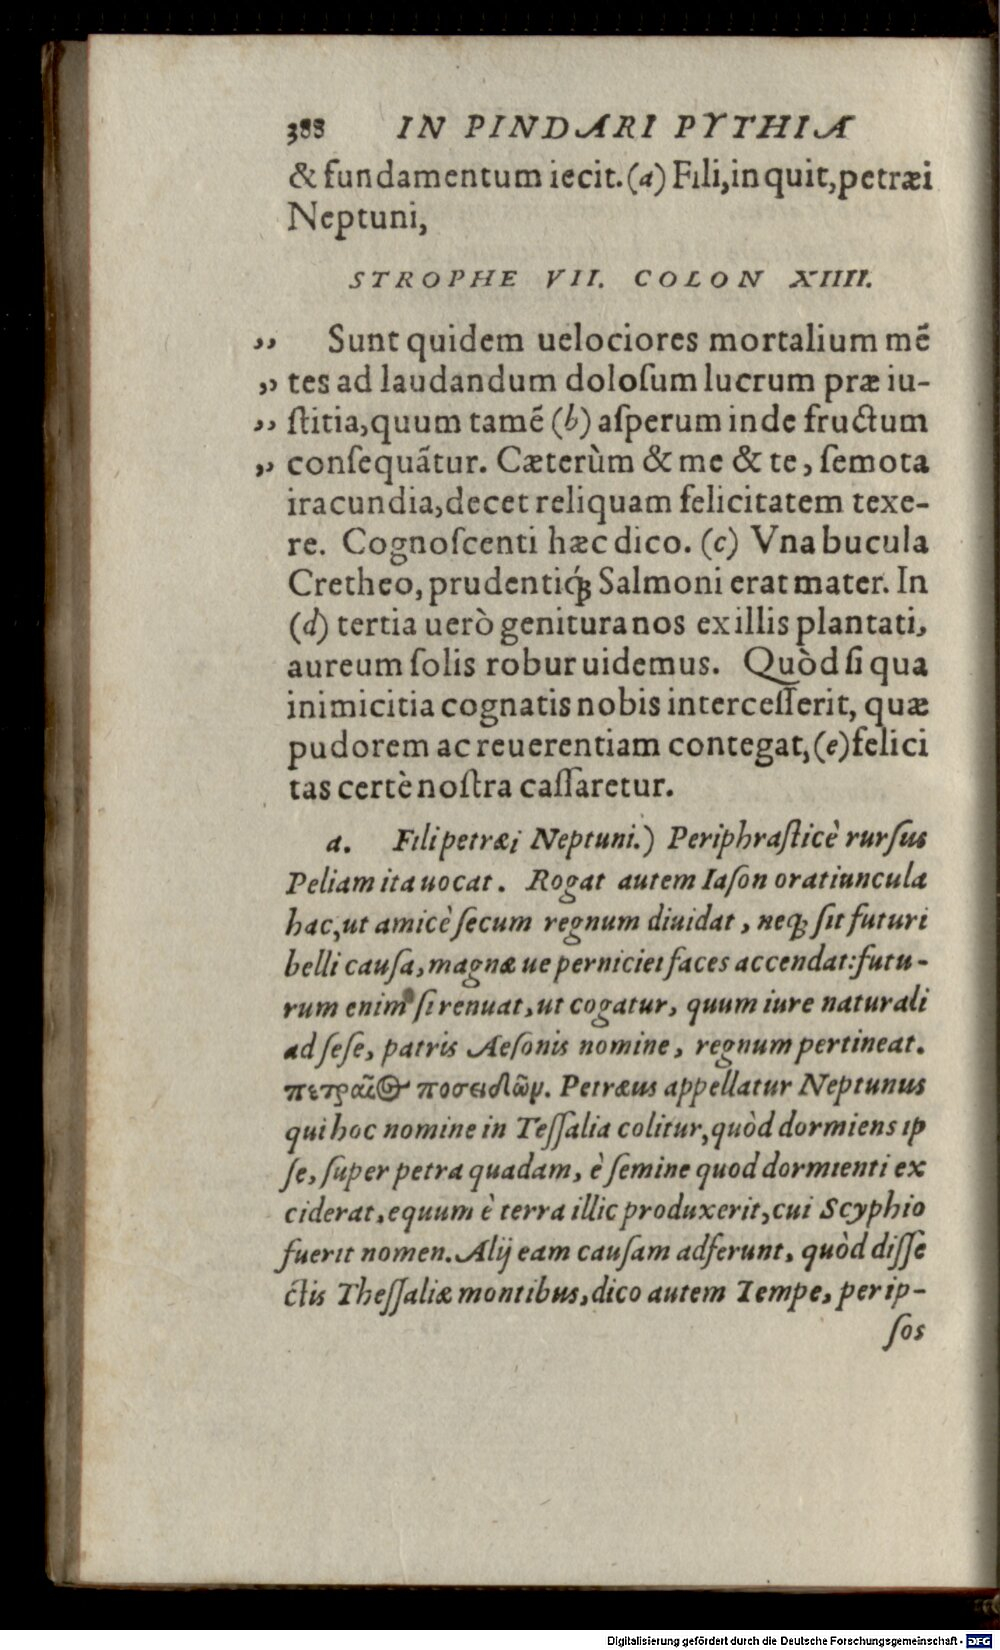 388 IN PINDARI PYTHIA
& fundamentum iecit. (a) Fili, inquit, petræi
Neptuni,
STROPHE VII. COLON XIIII.
„ Sunt quidem uelociores mortalium mẽ
„ tes ad laudandum doloſum lucrum præ iu-
„ ſtitia, quum tamẽ (b) aſperum inde fructum
„ conſequãtur. Cæterùm & me & te, ſemota
iracundia, decet reliquam felicitatem texe-
re. Cognoſcenti hæc dico. (c) Vna bucula
Cretheo, prudentiq́ꝫ Salmoni erat mater. In
(d) tertia uerò genitura nos ex illis plantati,
aureum ſolis robur uidemus. Quòd ſi qua
inimicitia cognatis nobis interceſſerit, quæ
pudorem ac reuerentiam contegat, (e) felici
tas certè noſtra caſſaretur.
a. Fili petræi Neptuni.) Periphraſticè rurſus
Peliam ita uocat. Rogat autem Iaſon oratiuncula
hac, ut amicè ſecum regnum diuidat, neqꝫ ſit futuri
belli cauſa, magnæ ue perniciei faces accendat: futu-
rum enim ſi renuat, ut cogatur, quum iure naturali
ad ſeſe, patris Aeſonis nomine, regnum pertineat.
πετραῖος ποσειδῶν. Petræus appellatur Neptunus
qui hoc nomine in Teſſalia colitur, quòd dormiens ip
ſe, ſuper petra quadam, è ſemine quod dormienti ex
ciderat, equum è terra illic produxerit, cui Scyphio
fuerit nomen. Alij eam cauſam adferunt, quòd diſſe
ctis Theſſaliæ montibus, dico autem Tempe, per ip-
ſos
Digitalisierung gefördert durch die Deutsche Forschungsgemeinschaft - DFG